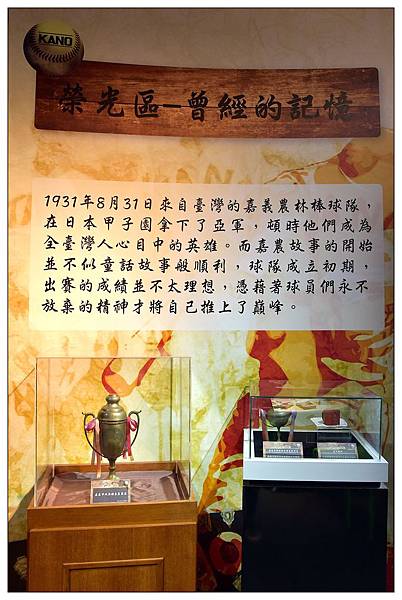 KANO
榮光區—曾經的記憶
1931年8月31日來自臺灣的嘉義農林棒球隊，
在日本甲子園拿下了亞軍，頓時他們成為
全臺灣人心目中的英雄。而嘉農故事的開始
並不似童話故事般順利，球隊成立初期，
出賽的成績並不太理想，憑藉著球員們永不
放棄的精神才將自己推上了巔峰。